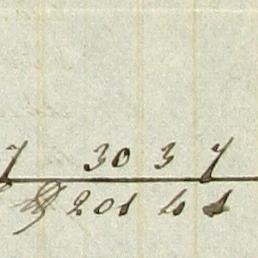 7 30 3 7
201 4 1